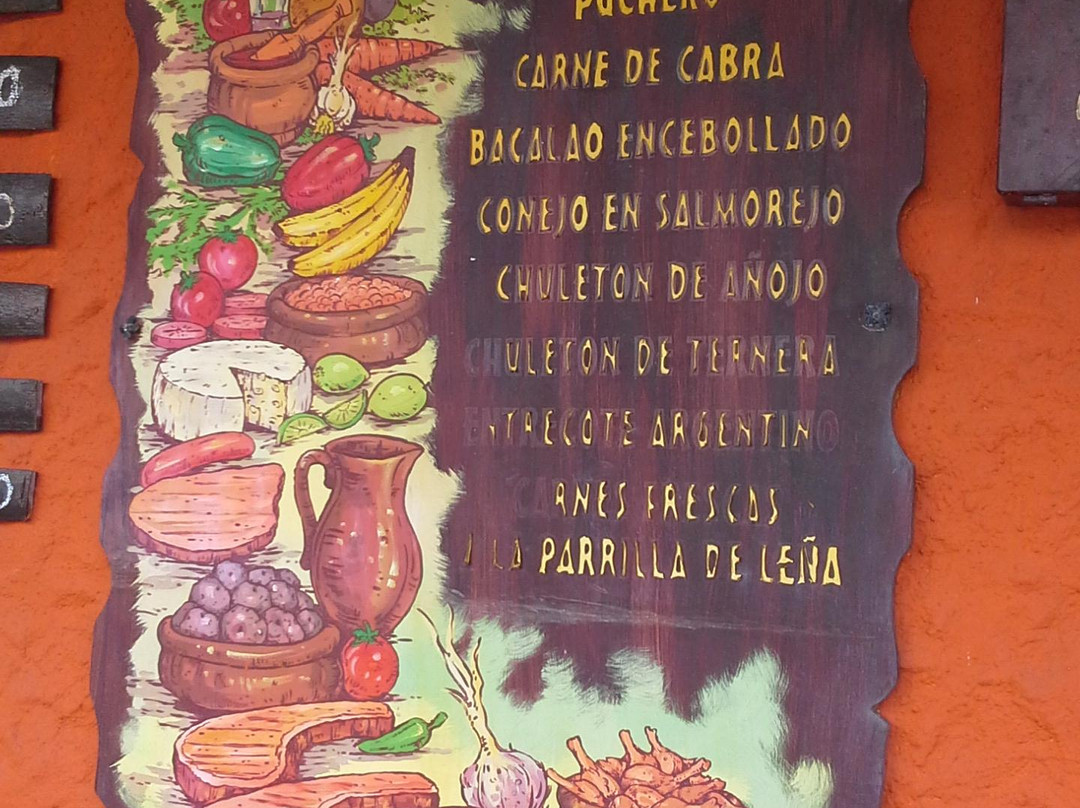 PUCHERO
CARNE DE CABRA
BACALAO ENCEBOLLADO
CONEJO EN SALMOREJO
CHULETON DE AÑOJO
CHULETON DE TERNERA
ENTRECOTE ARGENTINO
CARNES FRESCAS
A LA PARRILLA DE LEÑA